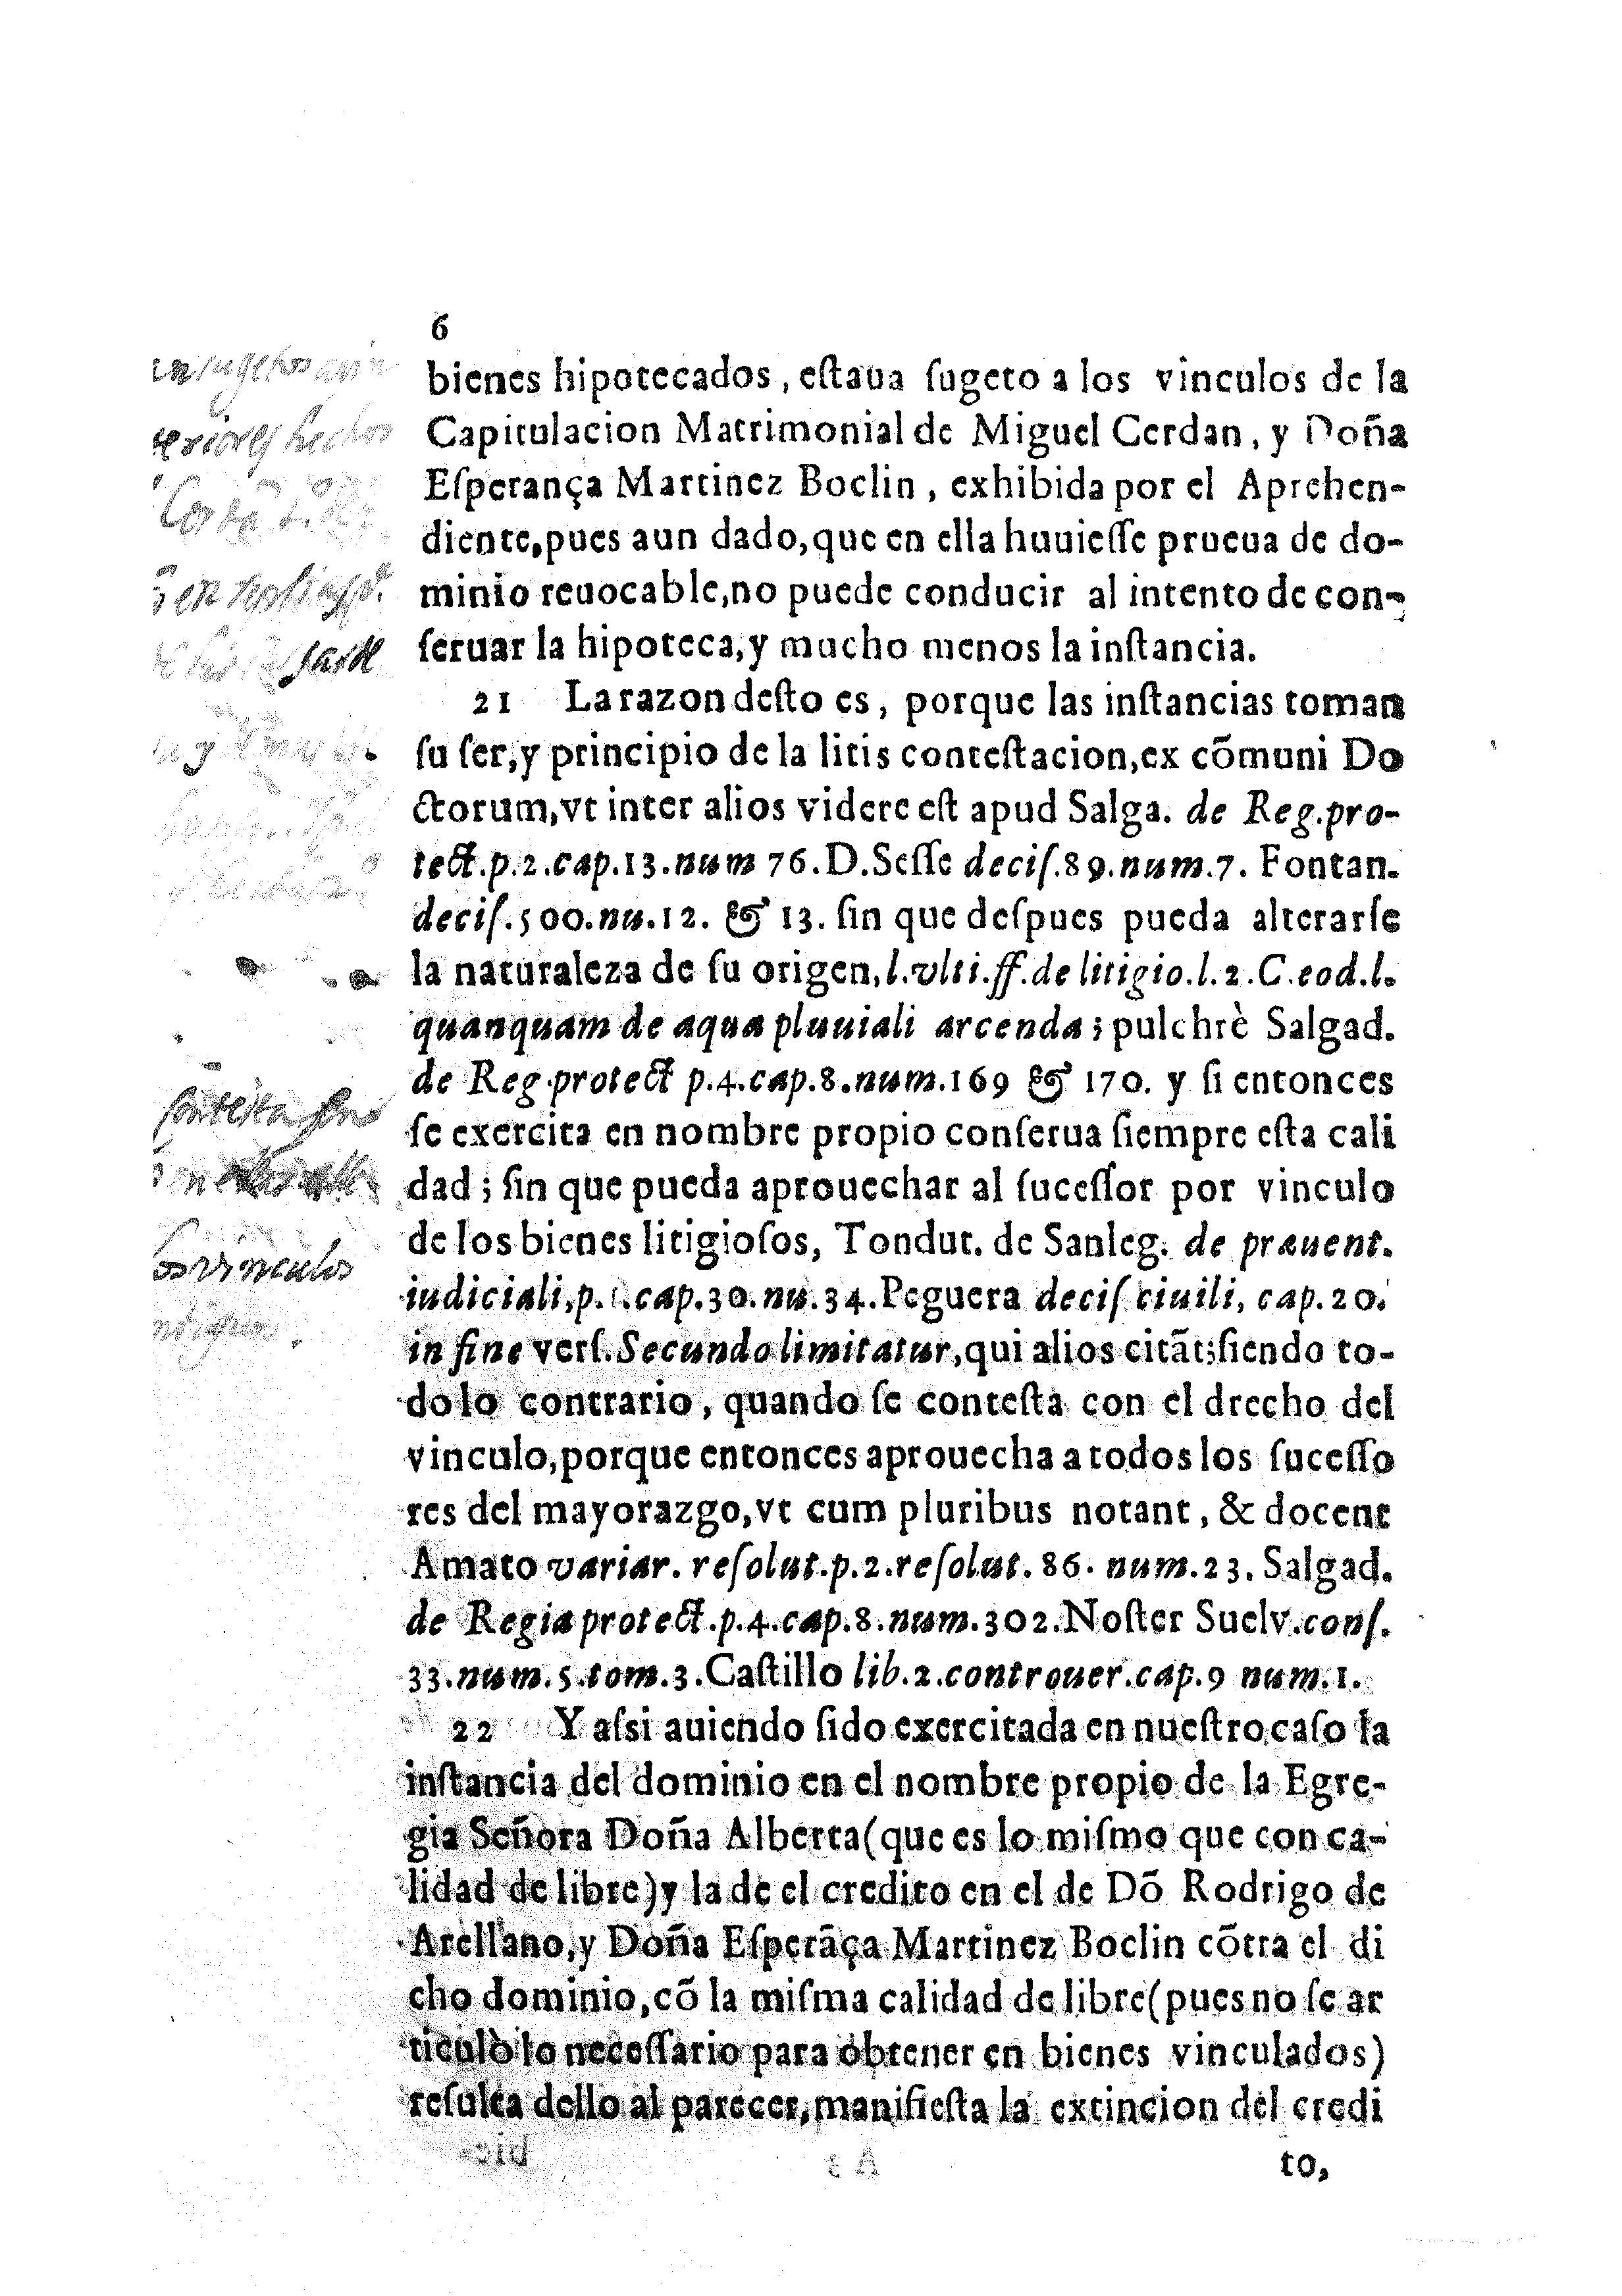 6
bienes hipotecados, estaua sugeto a los vinculos de la
Capitulacion Matrimonial de Miguel Cerdan, y Doña
Esperança Martinez Boclin, exhibida por el Aprehen-
diente,pues aun dado,que en ella huuiesse prueua de do-
minio reuocable,no puede conducir al intento de con-
seruar la hipoteca,y mucho menos la instancia.
21 La razon desto es, porque las instancias toman
su ser,y principio de la litis contestacion,ex cõmuni Do
ctorum,vt inter alios videre est apud Salga. de Reg.pro-
tect.p.2.cap.13.num 76.D.Sesse decis.89.num.7. Fontan.
decis.500.nu.12. & 13. sin que despues pueda alterarse
la naturaleza de su origen,l.vlti.ff.de litigio.l.2.C.eod.l.
quanquam de aqua pluuiali arcenda; pulchrè Salgad.
de Reg.protect p.4.cap.8.num.169 & 170. y si entonces
se exercita en nombre propio conserua siempre esta cali
dad; sin que pueda aprouechar al sucessor por vinculo
de los bienes litigiosos, Tondut. de Sanleg. de præuent.
iudiciali,p. .cap.30.nu.34.Peguera decis ciuili, cap.20.
in fine vers.Secundo limitatur,qui alios citãt;siendo to-
do lo contrario, quando se contesta con el drecho del
vinculo,porque entonces aprouecha a todos los sucesso
res del mayorazgo,vt cum pluribus notant, & docent
Amato variar. resolut.p.2.resolut. 86. num.23. Salgad.
de Regia protect.p.4.cap.8.num.302.Noster Suelv.cons.
33.num.5.tom.3.Castillo lib.2.controuer.cap.9 num.1.
22 Y assi auiendo sido exercitada en nuestro caso la
instancia del dominio en el nombre propio de la Egre-
gia Señora Doña Alberta(que es lo mismo que con ca-
lidad de libre)y la de el credito en el de Dõ Rodrigo de
Arellano,y Doña Esperãça Martinez Boclin cõtra el di
cho dominio,cõ la misma calidad de libre(pues no se ar
ticulò lo necessario para obtener en bienes vinculados)
resulta dello al parecer,manifiesta la extincion del credi
to,
hechos
contesta
vinculos